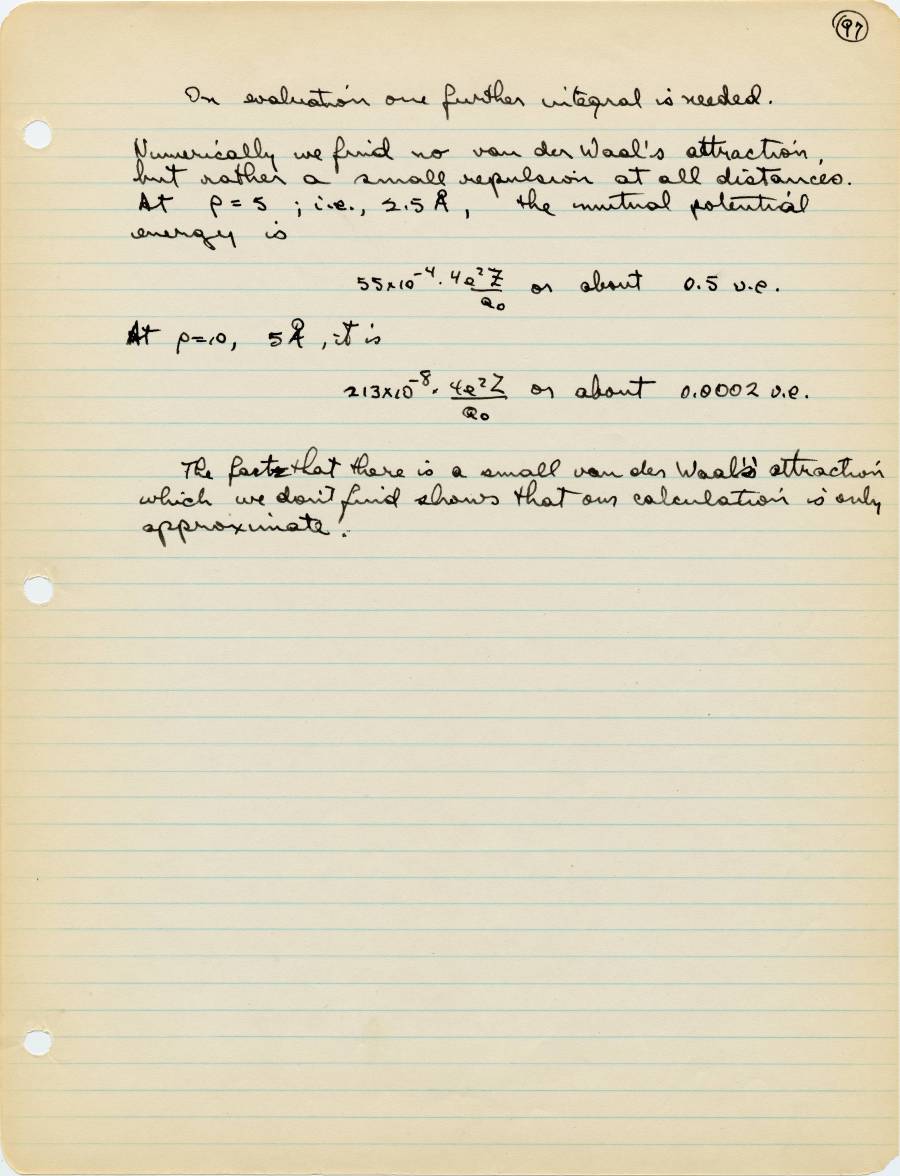 97
On evaluation one further integral is needed.
Numerically we find no van der Waal's attraction,
but rather a small repulsion at all distances.
At ρ = 5 ; i.e., 2.5 Å, the mutual potential
energy is
55×10⁻⁴ · 4e²Z/a₀ or about 0.5 v.e.
At ρ=10, 5 Å, it is
213×10⁻⁸ · 4e²Z/a₀ or about 0.0002 v.e.
The fact that there is a small van der Waal's attraction
which we don't find shows that our calculation is only
approximate.